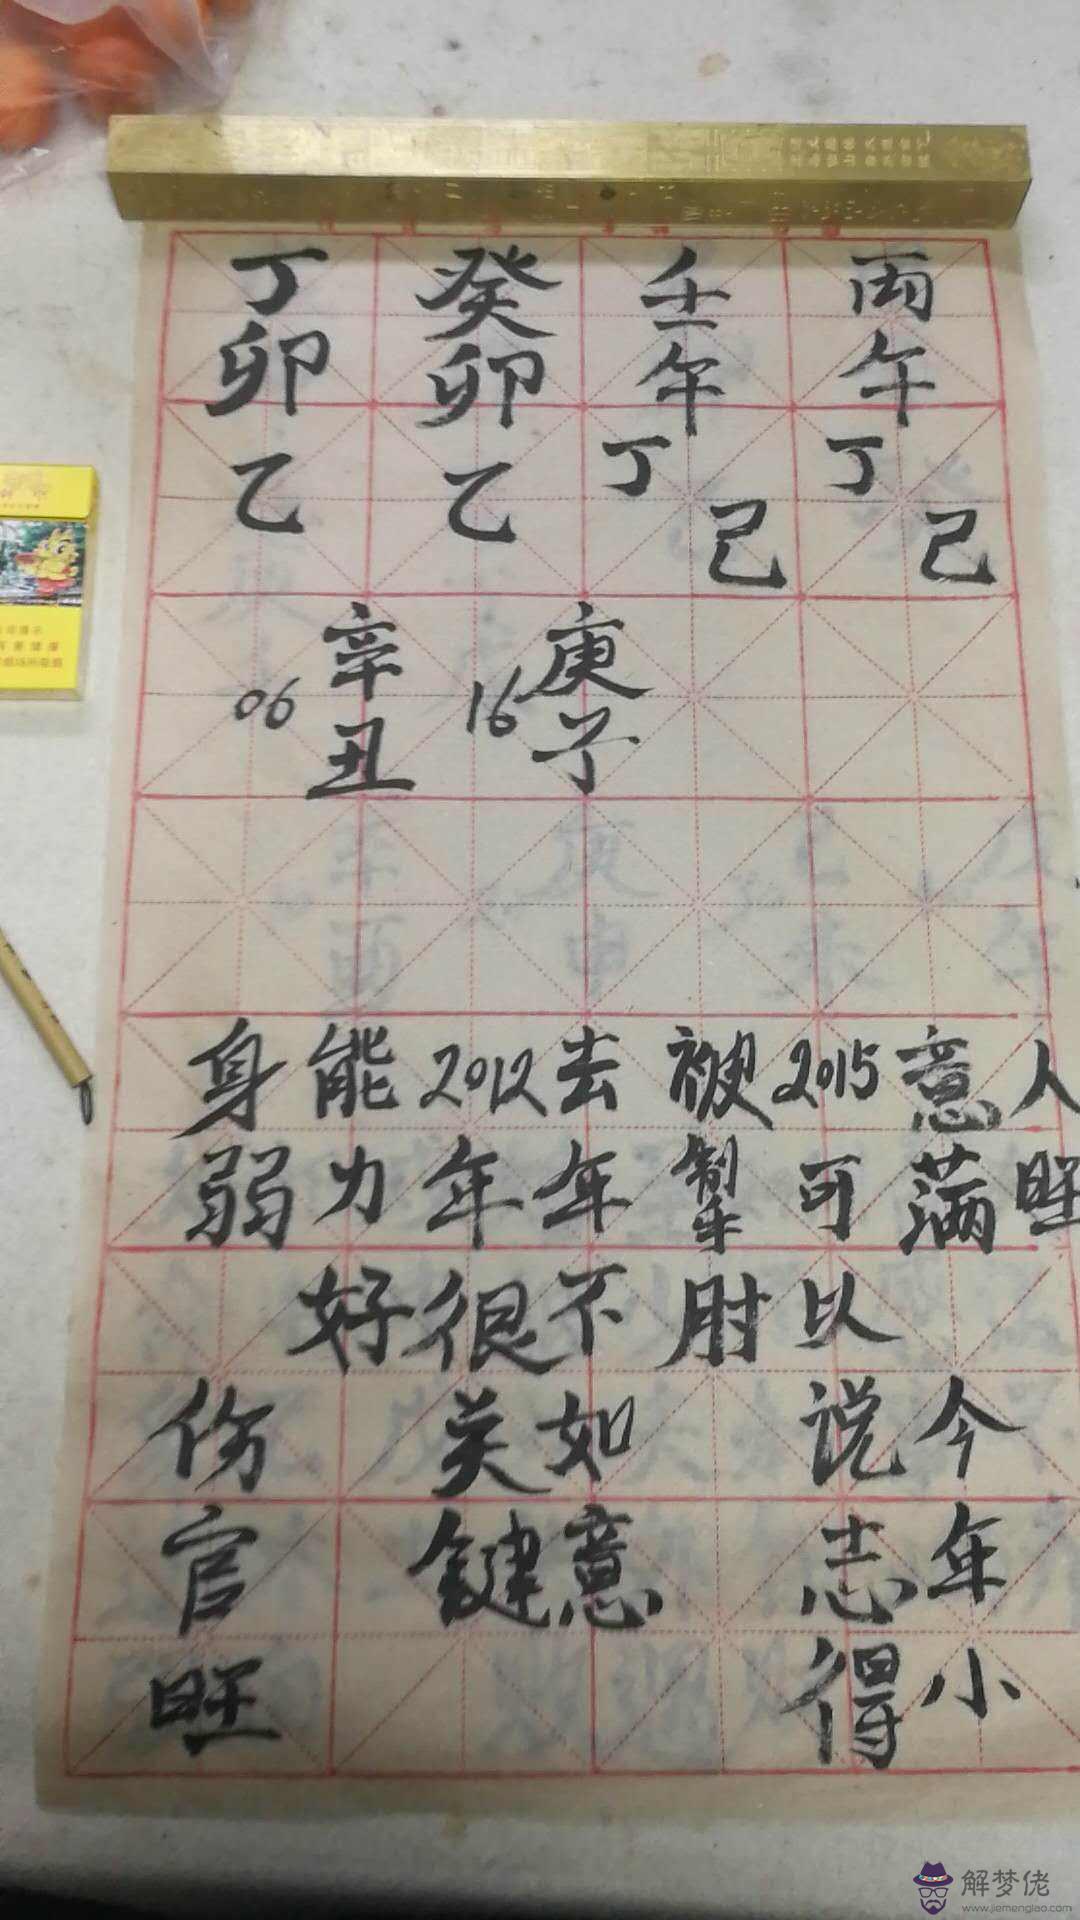 丁卯乙
癸卯乙
壬午丁己
丙午丁己
06 辛丑
16 庚子
身弱 伤官旺
能力好
2012年很关键
去年不如意
被掣肘
2015可以说志得
意满 今年小
人旺
解梦佬
www.jiemenglao.com